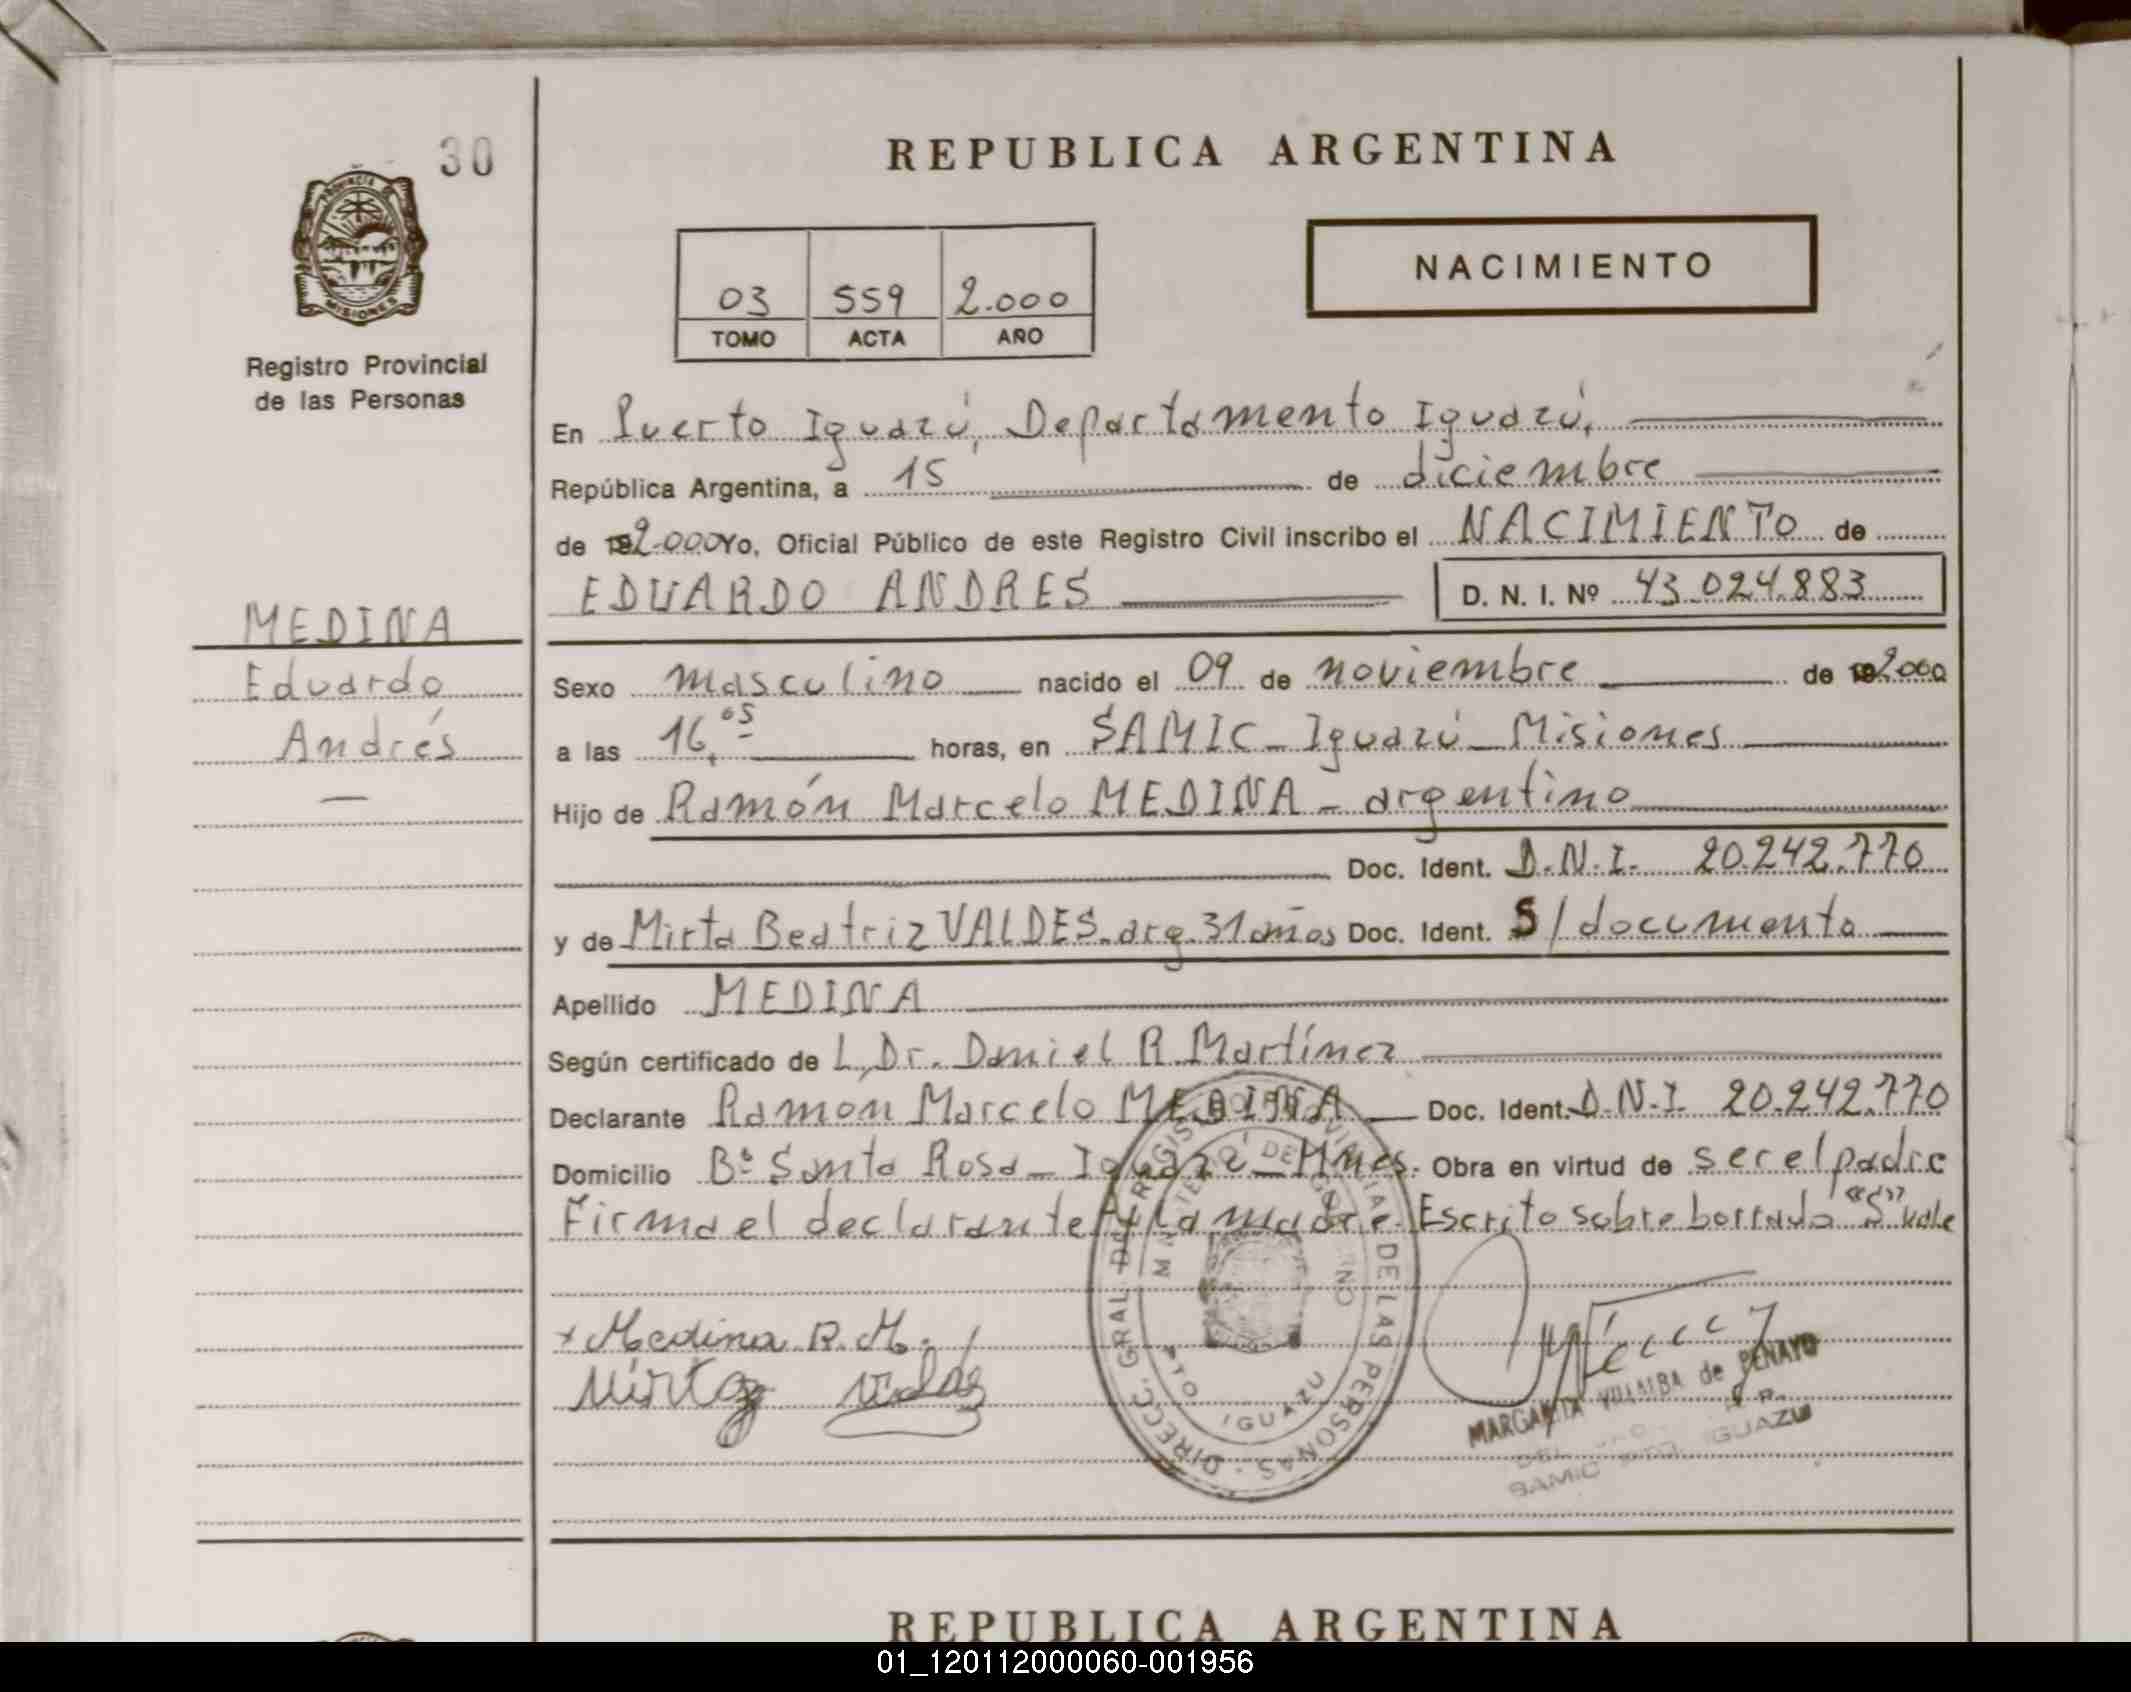 30
PROVINCIA DE
MISIONES
Registro Provincial
de las Personas
MEDINA
Eduardo
Andrés
REPUBLICA ARGENTINA
NACIMIENTO
03 559 2.000
TOMO ACTA AÑO
En Puerto Iguazú, Departamento Iguazú,
República Argentina, a 15 de diciembre
de 192.000 Yo, Oficial Público de este Registro Civil inscribo el NACIMIENTO de
EDUARDO ANDRES D. N. I. Nº 43.024.883
Sexo masculino nacido el 09 de noviembre de 192000
a las 16,05 horas, en SAMIC - Iguazú - Misiones
Hijo de Ramón Marcelo MEDINA - argentino
Doc. Ident. D.N.I. 20.242.770
y de Mirta Beatriz VALDES. arg. 31 años Doc. Ident. S/documento
Apellido MEDINA
Según certificado de L, Dr. Daniel R. Martínez
Declarante Ramon Marcelo MEDINA Doc. Ident. D.N.I 20.242.770
Domicilio Bº Santa Rosa - Iguazú - Mnes. Obra en virtud de ser el padre
Firma el declarante y la madre. Escrito sobre borrado "S" vale
x Medina R. M.
Mirta
DIRECC. GRAL. DEL REGISTRO PROVINCIAL DE LAS PERSONAS
MINISTERIO DE GOBIERNO
PTO IGUAZU
MARGARITA VILLALBA de PENAYO
SAMIC IGUAZU
REPUBLICA ARGENTINA
01_120112000060-001956